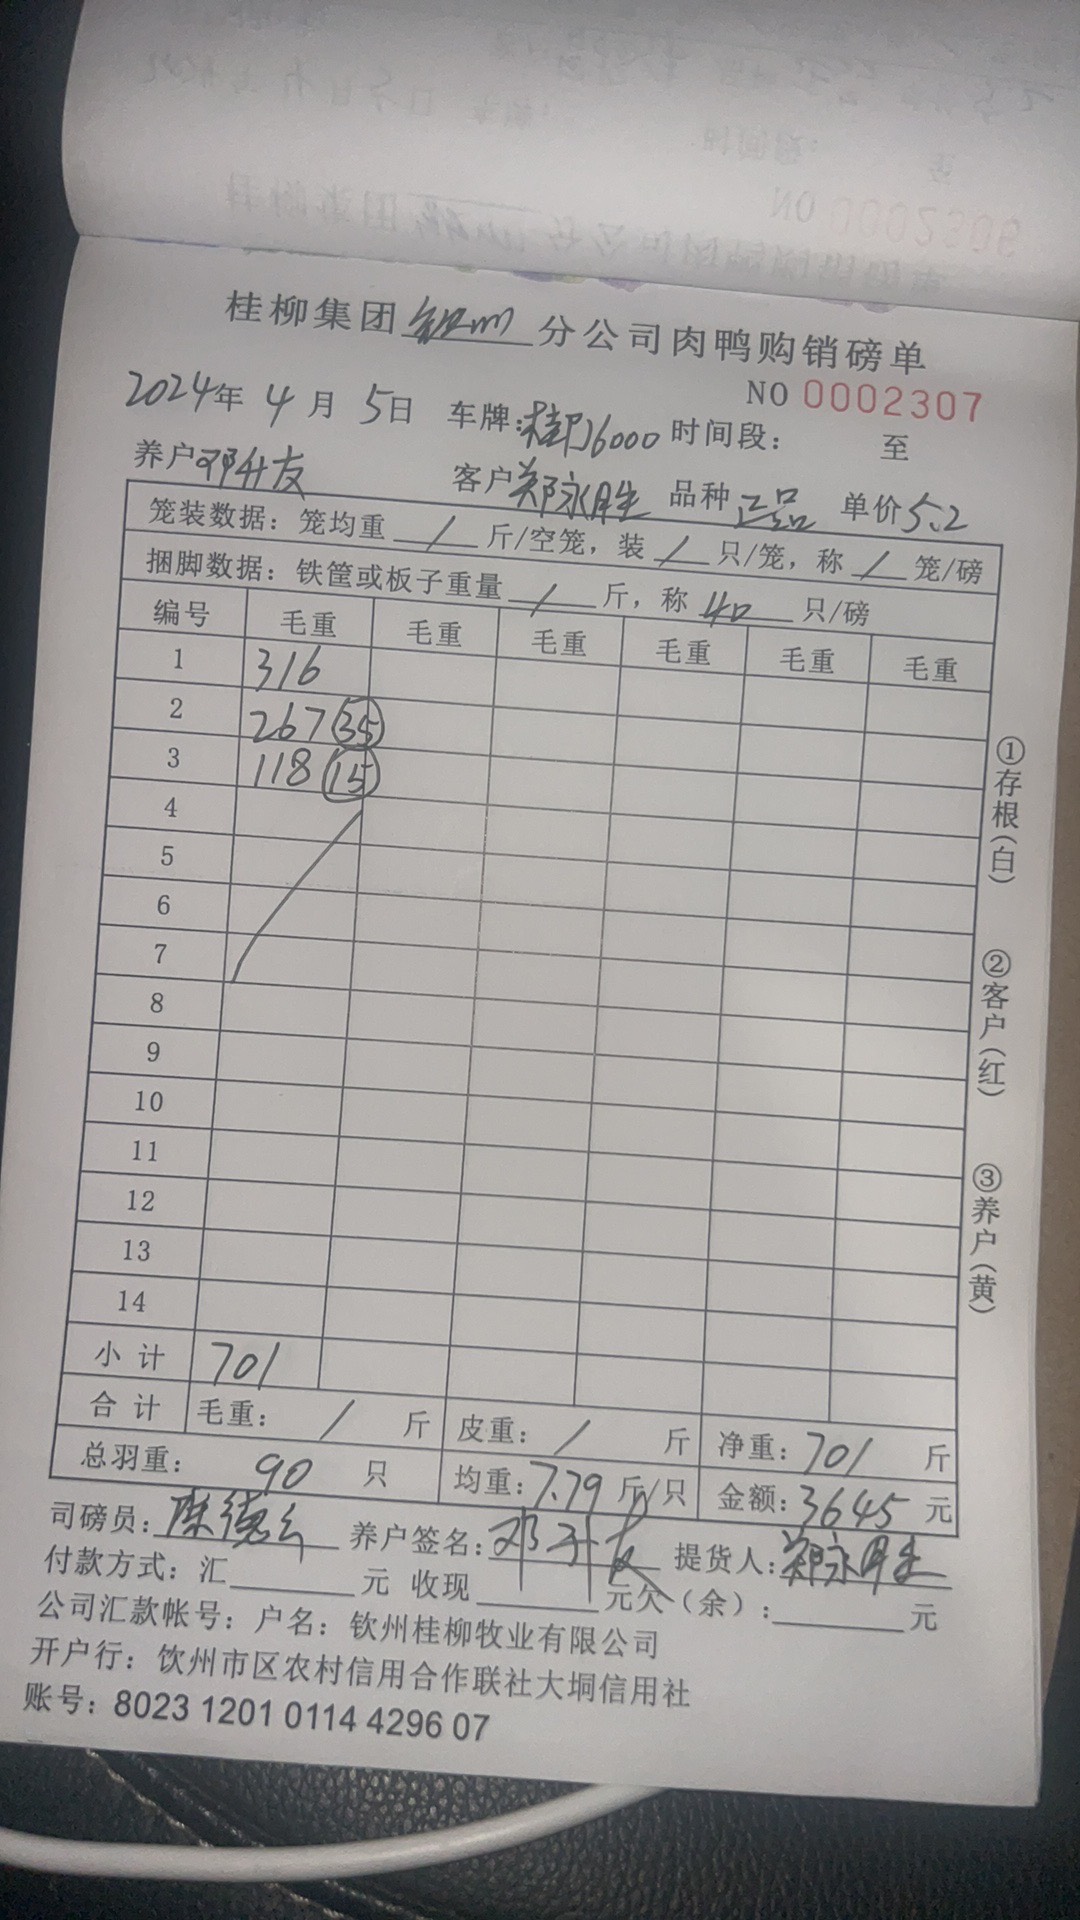 NO 0002306
桂柳集团钦州分公司肉鸭购销磅单
NO 0002307
2024年 4月 5日 车牌:桂J6000 时间段: 至
养户邓升友 客户郑永胜 品种正品 单价5.2
笼装数据：笼均重 / 斤/空笼，装 / 只/笼，称 / 笼/磅
捆脚数据：铁筐或板子重量 / 斤，称 40 只/磅
编号 毛重 毛重 毛重 毛重 毛重 毛重
1 316
2 267 (35)
3 118 (15)
4
5
6
7
8
9
10
11
12
13
14
小 计 701
合 计 毛重： / 斤 皮重： / 斤 净重：701 斤
总羽重： 90 只 均重：7.79 斤/只 金额：3645 元
司磅员： 养户签名：邓升友 提货人：郑永胜
付款方式：汇 元 收现 元欠（余）： 元
公司汇款帐号：户名：钦州桂柳牧业有限公司
开户行：饮州市区农村信用合作联社大垌信用社
账号：8023 1201 0114 4296 07
①存根(白)
②客户(红)
③养户(黄)